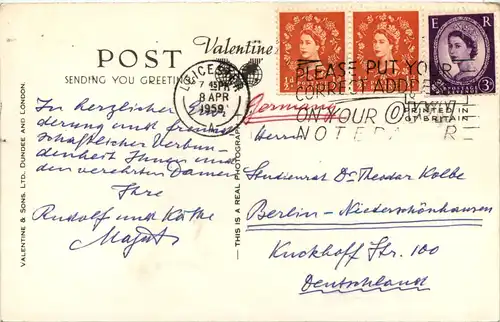 POST
Valentine's
SENDING YOU GREETINGS
LEICESTER
8 APR
1959
PLEASE PUT YOUR
CORRECT ADDRESS
ON YOUR
NOTEPAPER
E R
3D
PRINTED IN
GT BRITAIN
Germany
In herzlicher
derung und freund-
schaftlicher Verbun-
denheit Ihnen und
den verehrten Damen
Ihre
Rudolf und Käthe
Herrn
Studienrat Dr. Theodor Kolbe
Berlin - Niederschönhausen
Kuckhoff Str. 100
Deutschland
VALENTINE & SONS. LTD. DUNDEE AND LONDON.
THIS IS A REAL PHOTOGRAPH